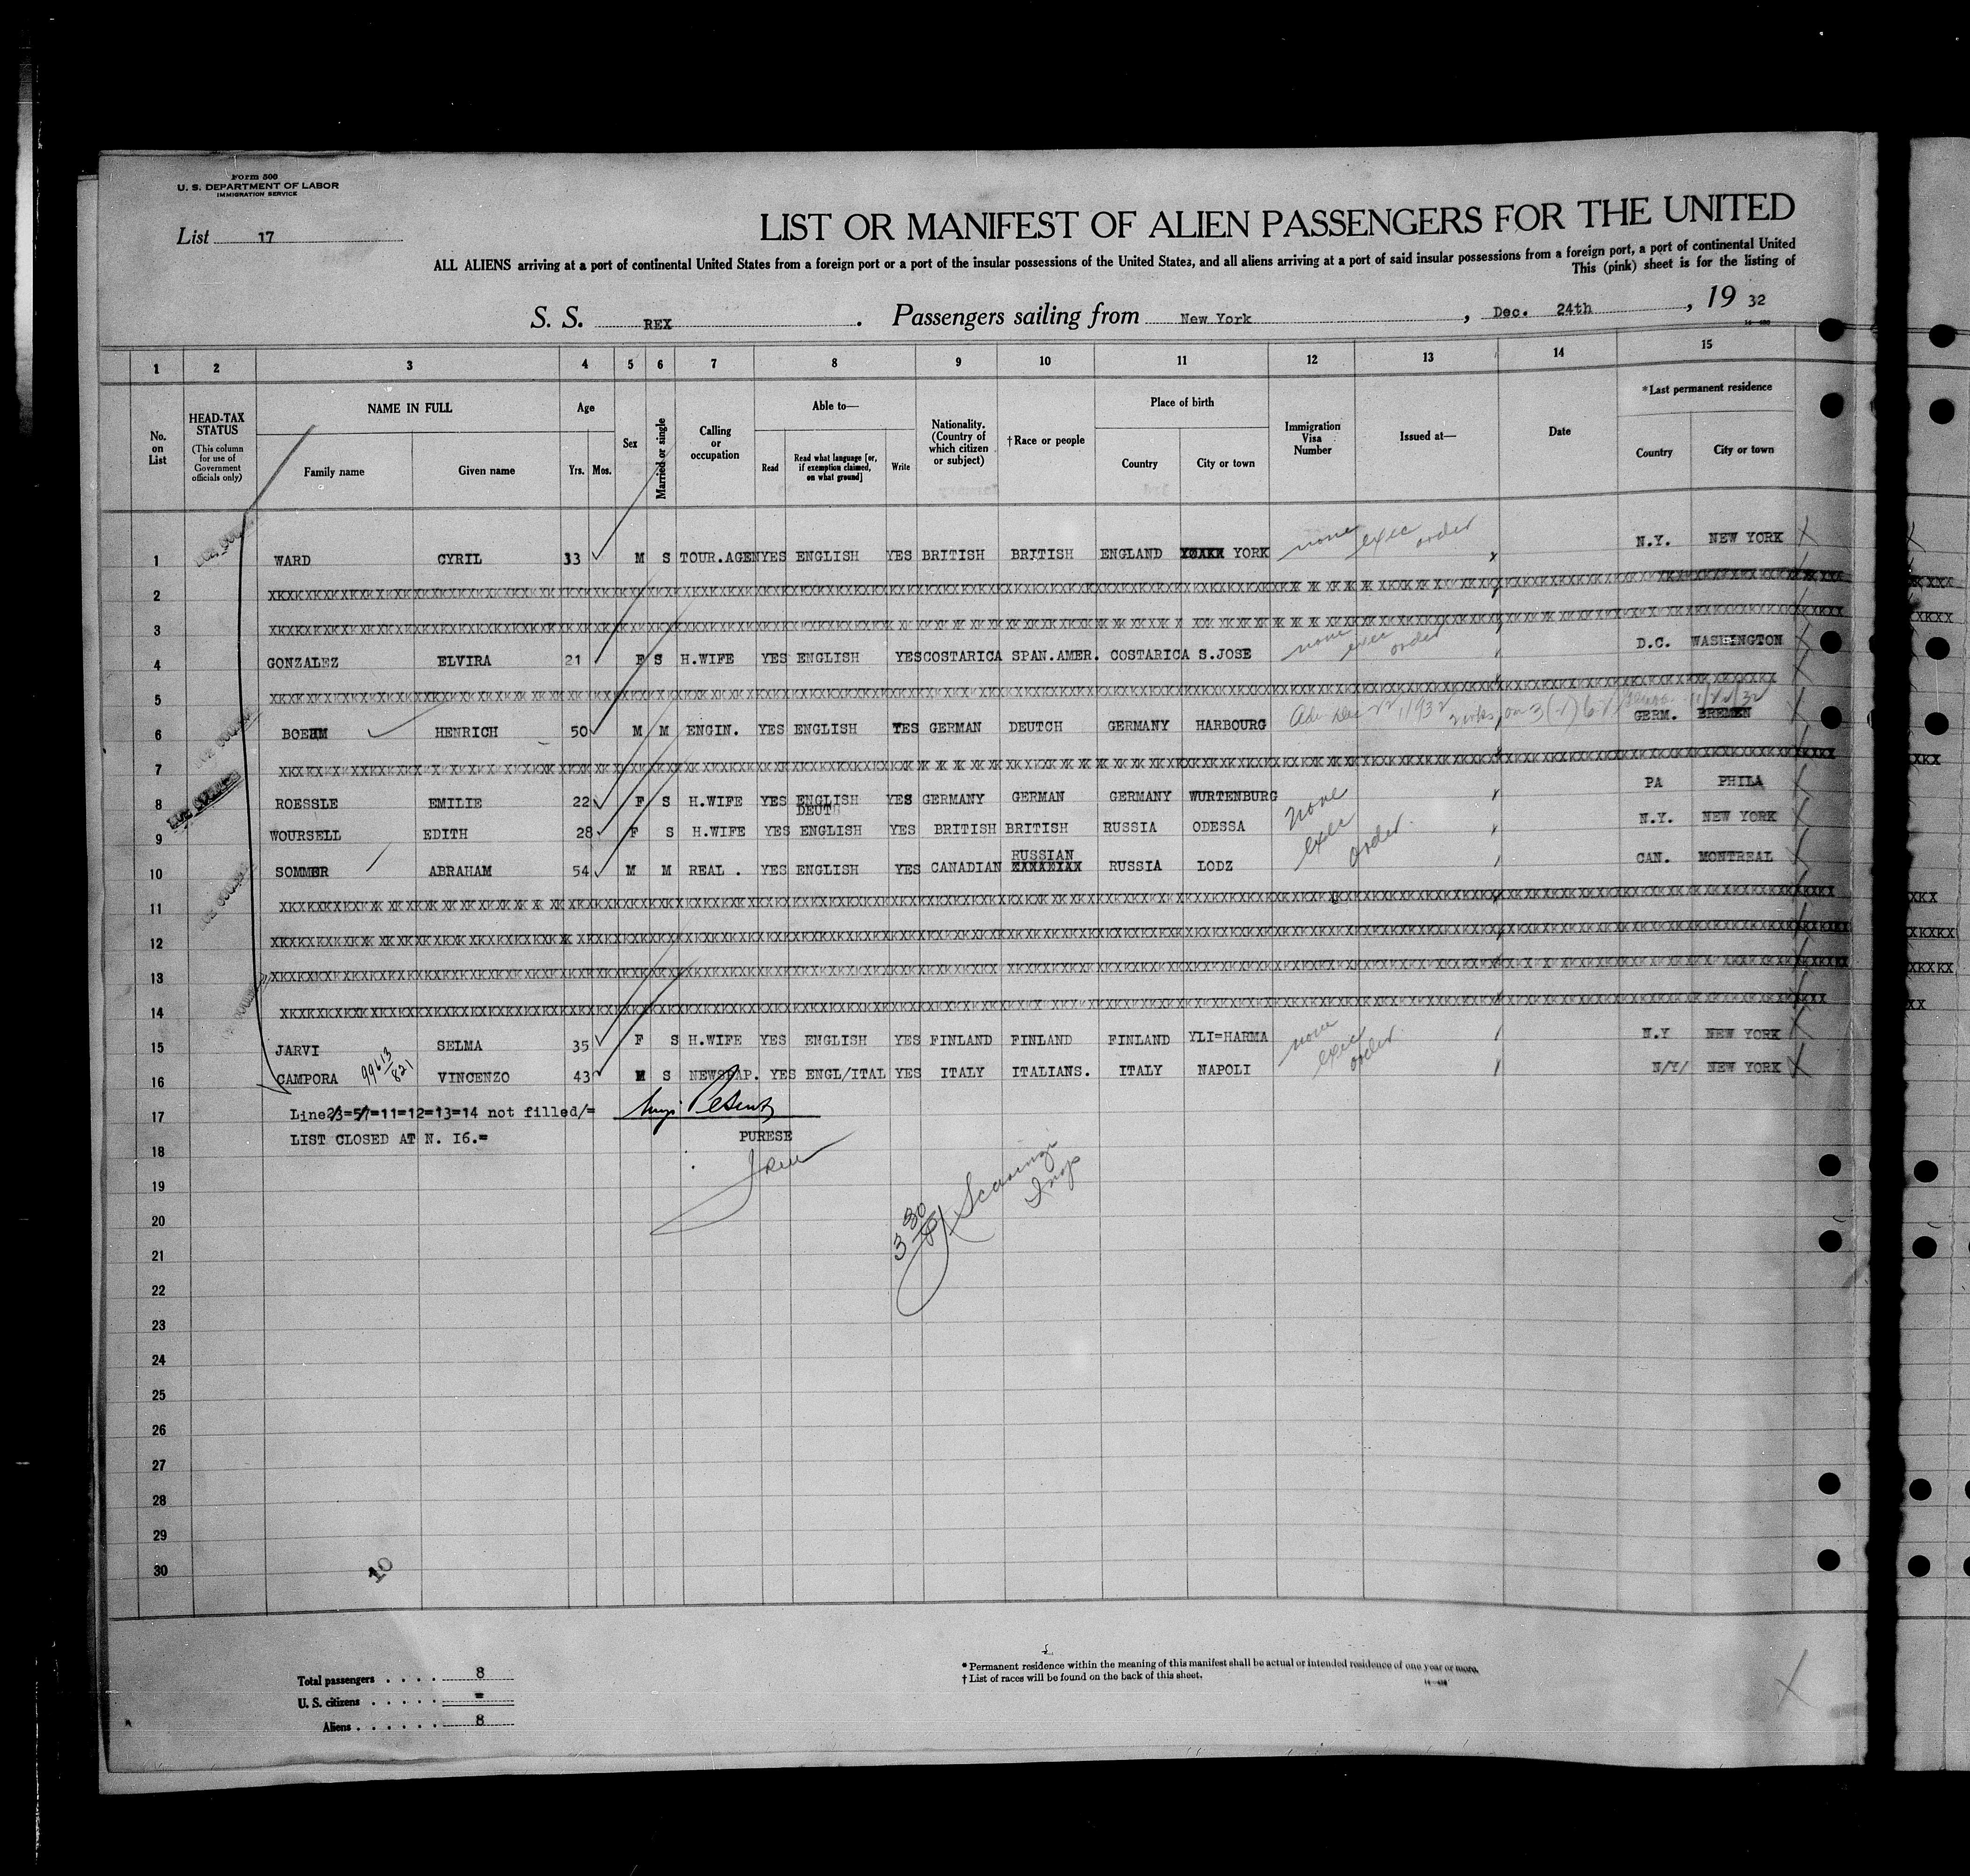 Form 500
U. S. DEPARTMENT OF LABOR
IMMIGRATION SERVICE
List 17
LIST OR MANIFEST OF ALIEN PASSENGERS FOR THE UNITED
ALL ALIENS arriving at a port of continental United States from a foreign port or a port of the insular possessions of the United States, and all aliens arriving at a port of said insular possessions from a foreign port, a port of continental United
This (pink) sheet is for the listing of
S. S. REX. Passengers sailing from New York, Dec. 24th, 19 32
1 2 3 4 5 6 7 8 9 10 11 12 13 14 15
No. on List
HEAD-TAX STATUS
(This column for use of Government officials only)
NAME IN FULL
Family name
Given name
Age
Yrs. Mos.
Sex
Married or single
Calling or occupation
Able to—
Read
Read what language [or, if exemption claimed, on what ground]
Write
Nationality. (Country of which citizen or subject)
†Race or people
Place of birth
Country
City or town
Immigration Visa Number
Issued at—
Date
*Last permanent residence
Country
City or town
1 WARD CYRIL 33 M S TOUR.AGEN YES ENGLISH YES BRITISH BRITISH ENGLAND YORK none exec order N.Y. NEW YORK
2
3
4 GONZALEZ ELVIRA 21 F S H.WIFE YES ENGLISH YES COSTARICA SPAN.AMER. COSTARICA S.JOSE none exec order D.C. WASHINGTON
5
6 BOEHM HENRICH 50 M M ENGIN. YES ENGLISH YES GERMAN DEUTCH GERMANY HARBOURG GERM. BREMEN
7
8 ROESSLE EMILIE 22 F S H.WIFE YES ENGLISH YES GERMANY GERMAN GERMANY WURTENBURG PA PHILA
DEUTH
9 WOURSELL EDITH 28 F S H.WIFE YES ENGLISH YES BRITISH BRITISH RUSSIA ODESSA none exec order. N.Y. NEW YORK
10 SOMMER ABRAHAM 54 M M REAL . YES ENGLISH YES CANADIAN RUSSIAN RUSSIA LODZ CAN. MONTREAL
11
12
13
14
15 JARVI SELMA 35 F S H.WIFE YES ENGLISH YES FINLAND FINLAND FINLAND YLI=HARMA none exec order N.Y NEW YORK
16 CAMPORA 99613/821 VINCENZO 43 M S NEWSPAP. YES ENGL/ITAL YES ITALY ITALIANS. ITALY NAPOLI N/Y/ NEW YORK
17 Line2/3=5/7=11=12=13=14 not filled/=
18 LIST CLOSED AT N. I6.= PURESE
19
20
21
22
23
24
25
26
27
28
29
30
10
Total passengers . . . . 8
U. S. citizens . . . . . =
Aliens . . . . . . 8
*Permanent residence within the meaning of this manifest shall be actual or intended residence of one year or more.
†List of races will be found on the back of this sheet.